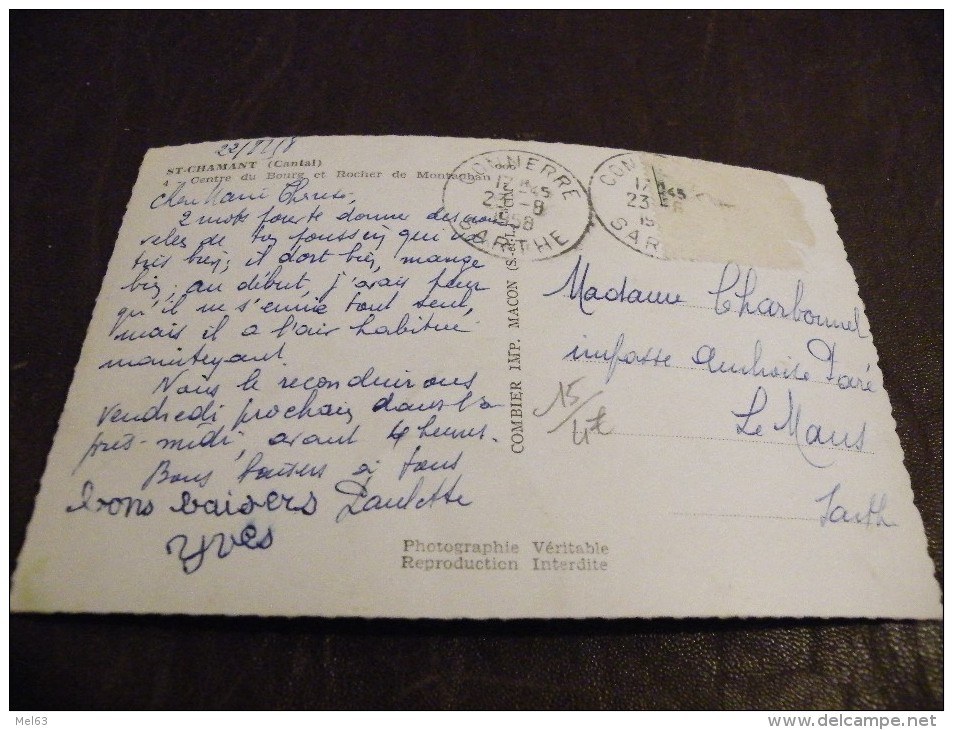 22/8/58
ST-CHAMANT (Cantal)
4 - Centre du Bourg et Rocher de Montagnan
Chère Marie Thérèse,
2 mots pour te donner des nou
velles de ton poussin qui va
très bien; il dort bien, mange
bien; au début, j'avais peur
qu'il ne s'ennuie tout seul,
mais il a l'air habitué
maintenant.
Nous le reconduirons
vendredi prochain dans l'a
près-midi, avant 4 heures.
Bons baisers à tous
Paulette
bons baisers
Yves
COMBIER IMP. MACON (S.-et-L.)
CONNERRE
17 H 45
23 - 8
1958
SARTHE
CON
17 45
23 8
15
SAR
Madame Charbonnel
impasse Ambroise Paré
Le Mans
Sarthe
15/
Photographie Véritable
Reproduction Interdite
Mel63
http://www.delcampe.net